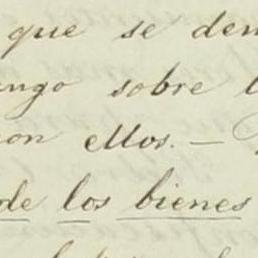 que se den
ngo sobre l
on ellos. —
de los bienes